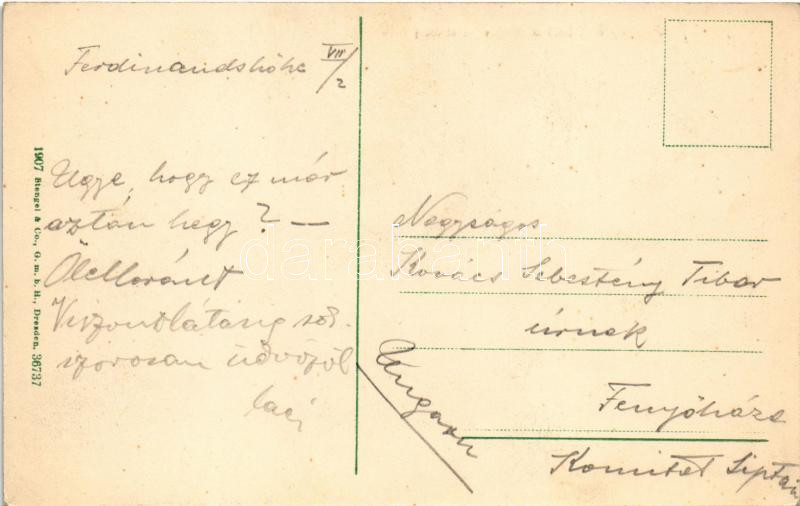 Ferdinandshöhe VII/2
Ugye, hogy ez már
aztán hegy? —
Viszontlátásig sok-
szorosan üdvözöl
Laci
1907 Stengel & Co., G. m. b. H., Dresden. 36737
Nagyságos
Kovács Sebestény Tibor
úrnak
Fenyőháza
Komitat Liptau
Ungarn
darabanth